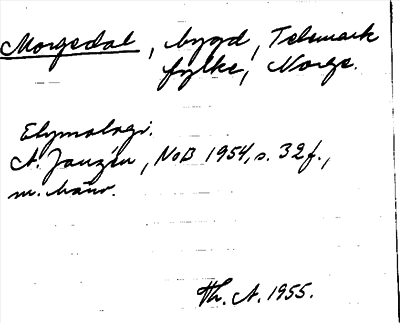 Morgedal, bygd, Telemark
fylke, Norge.
Etymologi:
A. Janzén, NoB 1954, s. 32 f.,
m. hänv.
Th. A. 1955.